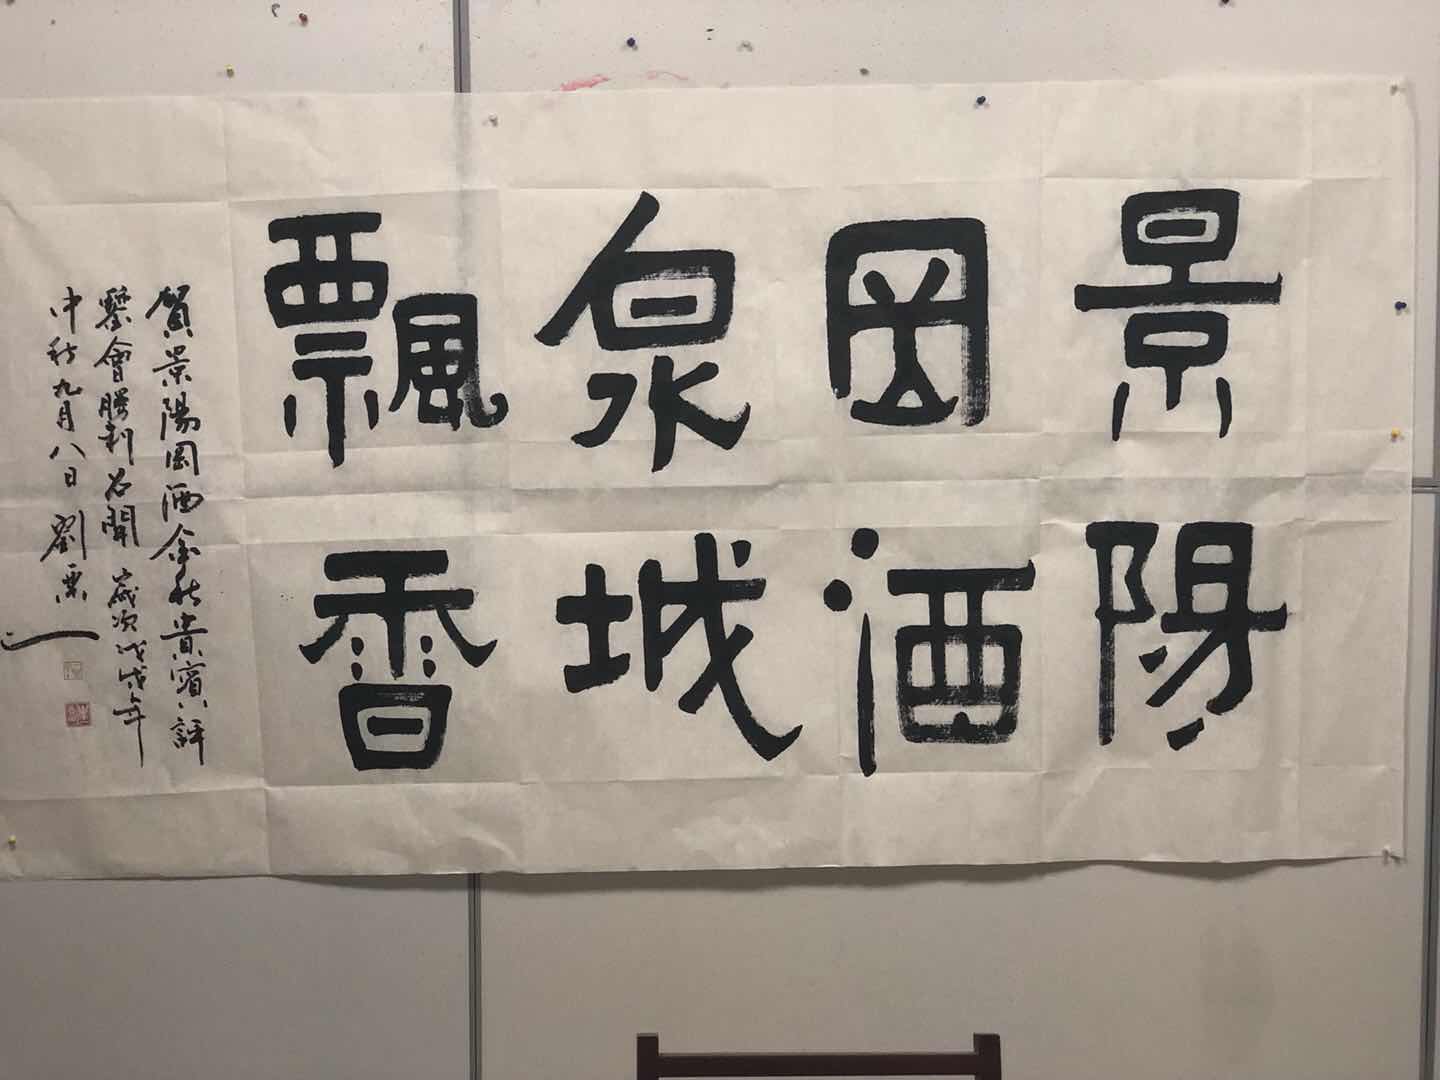 景陽
岡酒
泉城
飄香
賀景陽岡酒金秋貴賓品評
鑒會勝利召開 歲次戊戌年
中秋九月八日 劉